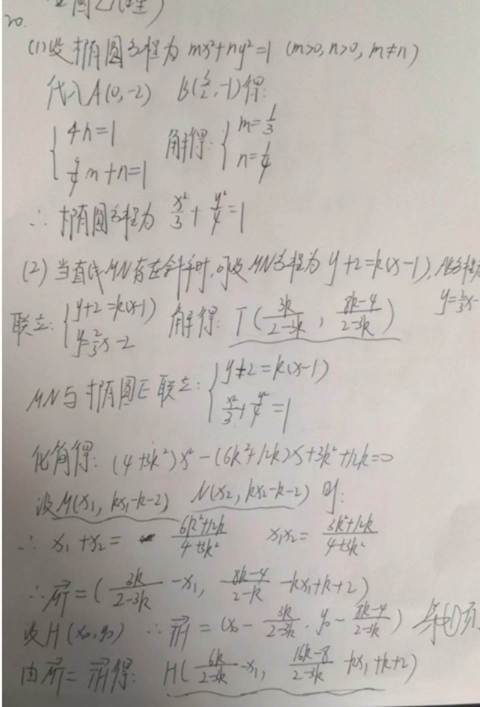 20.
(1)设椭圆方程为 mx²+ny²=1 (m>0,n>0,m≠n)
代入A(0,-2) B(3/2,-1)得:
{ 4n=1
9/4 m+n=1 解得: { m=1/3
n=1/4
∴ 椭圆方程为 x²/3 + y²/4 =1
(2) 当直线MN有存在斜率时,可设MN方程为 y+2=k(x-1),
y=2/3x-
联立: { y+2=k(x-1)
y=2/3x-2 解得: T(3k/(2-3k), (8k-4)/(2-3k))
MN与椭圆E联立: { y+2=k(x-1)
x²/3+y²/4=1
化简得: (4+3k²)x²-(6k²+12k)x+3k²+12k=0
设M(x₁, kx₁-k-2) N(x₂, kx₂-k-2) 则:
∴ x₁+x₂= (6k²+12k)/(4+3k²) x₁x₂= (3k²+12k)/(4+3k²)
∴ MT=(3k/(2-3k) -x₁, (8k-4)/(2-k) -kx₁+k+2)
设H(x₀,y₀) ∴ TH=(x₀- 3k/(2-3k), y₀- (8k-4)/(2-k))
由MT=TH得: H(6k/(2-3k) -x₁, (16k-8)/(2-3k) -kx₁+k+2)